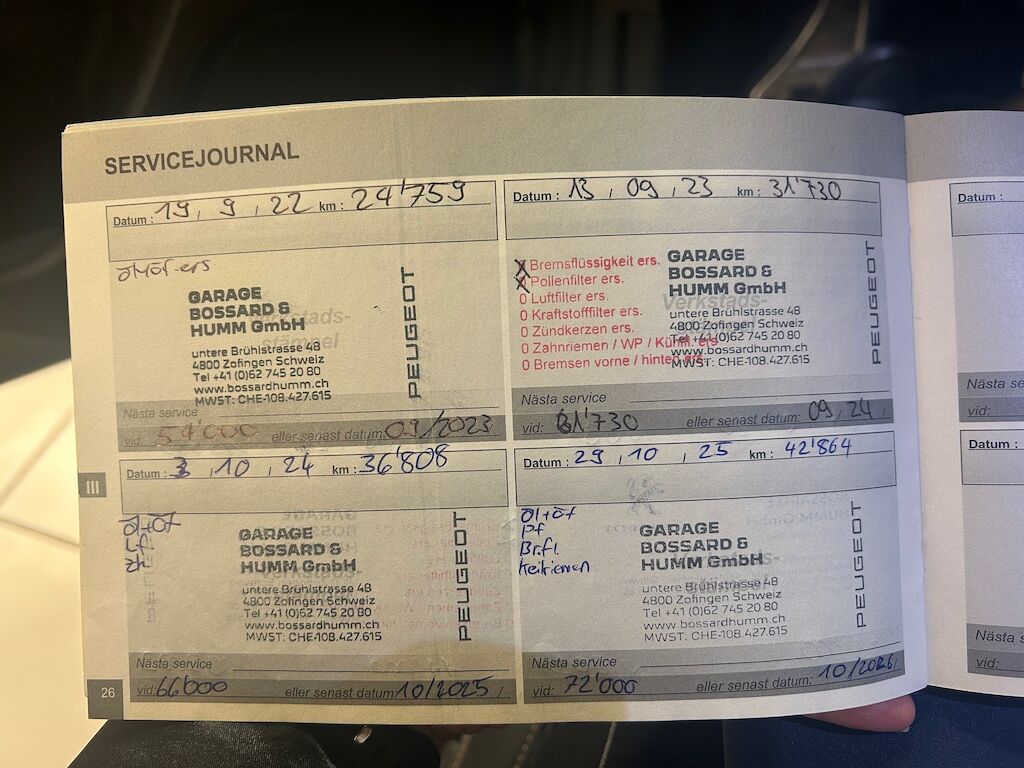 SERVICEJOURNAL
Datum : 19 , 9 , 22 km : 24'759
GARAGE
BOSSARD &
HUMM GmbH
untere Brühlstrasse 48
4800 Zofingen Schweiz
Tel +41 (0)62 745 20 80
www.bossardhumm.ch
MWST: CHE-108.427.615
PEUGEOT
Nästa service
vid: 54'000 eller senast datum: 09/2023
Datum : 13 , 09 , 23 km : 31'730
0 Bremsflüssigkeit ers.
0 Pollenfilter ers.
0 Luftfilter ers.
0 Kraftstofffilter ers.
0 Zündkerzen ers.
0 Zahnriemen / WP / Kühlfl. ers
0 Bremsen vorne / hinten ers.
GARAGE
BOSSARD &
HUMM GmbH
Verkstads-
untere Brühlstrasse 48
4800 Zofingen Schweiz
Tel +41 (0)62 745 20 80
MWST: CHE-108.427.615
PEUGEOT
Nästa service
vid: 61'730 eller senast datum: 09/24
III
Datum : 3 , 10 , 24 km : 36'808
Öl+öf
GARAGE
BOSSARD &
HUMM GmbH
untere Brühlstrasse 48
4800 Zofingen Schweiz
Tel +41 (0)62 745 20 80
www.bossardhumm.ch
MWST: CHE-108.427.615
PEUGEOT
Nästa service
vid: 66'000 eller senast datum: 10/2025
26
Datum : 29 , 10 , 25 km : 42'864
Öl+öf
Pf
Br.fl.
Keilriemen
GARAGE
BOSSARD &
HUMM GmbH
untere Brühlstrasse 48
4800 Zofingen Schweiz
Tel +41 (0)62 745 20 80
www.bossardhumm.ch
MWST: CHE-108.427.615
PEUGEOT
Nästa service
vid: 72'000 eller senast datum: 10/2026
Datum :
Nästa se
vid:
Datum :
Nästa s
vid: